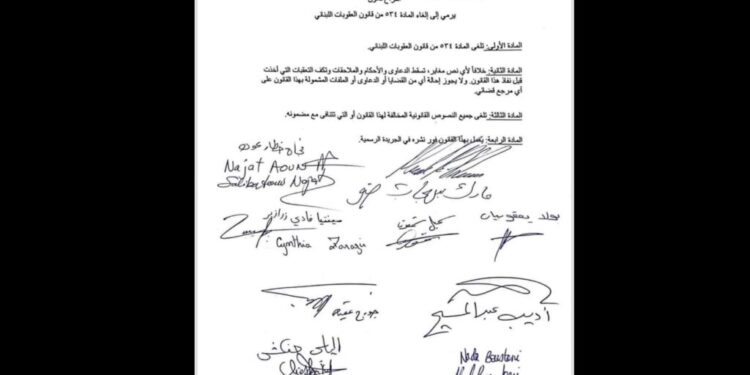 يرمي إلى إلغاء المادة ٥٣٤ من قانون العقوبات اللبناني
المادة الأولى: تلغى المادة ٥٣٤ من قانون العقوبات اللبناني.
المادة الثانية: خلافاً لأي نص مغاير، تسقط الدعاوى والأحكام والملاحقات وتكف التعقبات التي أخذت
قبل نفاذ هذا القانون. ولا يجوز إحالة أي من القضايا أو الدعاوى أو الملفات المشمولة بهذا القانون على
أي مرجع قضائي.
المادة الثالثة: تلغى جميع النصوص القانونية المخالفة لهذا القانون أو التي تتنافى مع مضمونه.
المادة الرابعة: يُعمل بهذا القانون فور نشره في الجريدة الرسمية.
نجاة خطار عون
Najat Aoun
Saliba Najat
مارك بهجات ضو
سينتيا فادي زرازير
Cynthia Zarazir
بولا يعقوبيان
جورج عقيص
أديب عبد المسيح
الياس حنكش
Nada Boustani